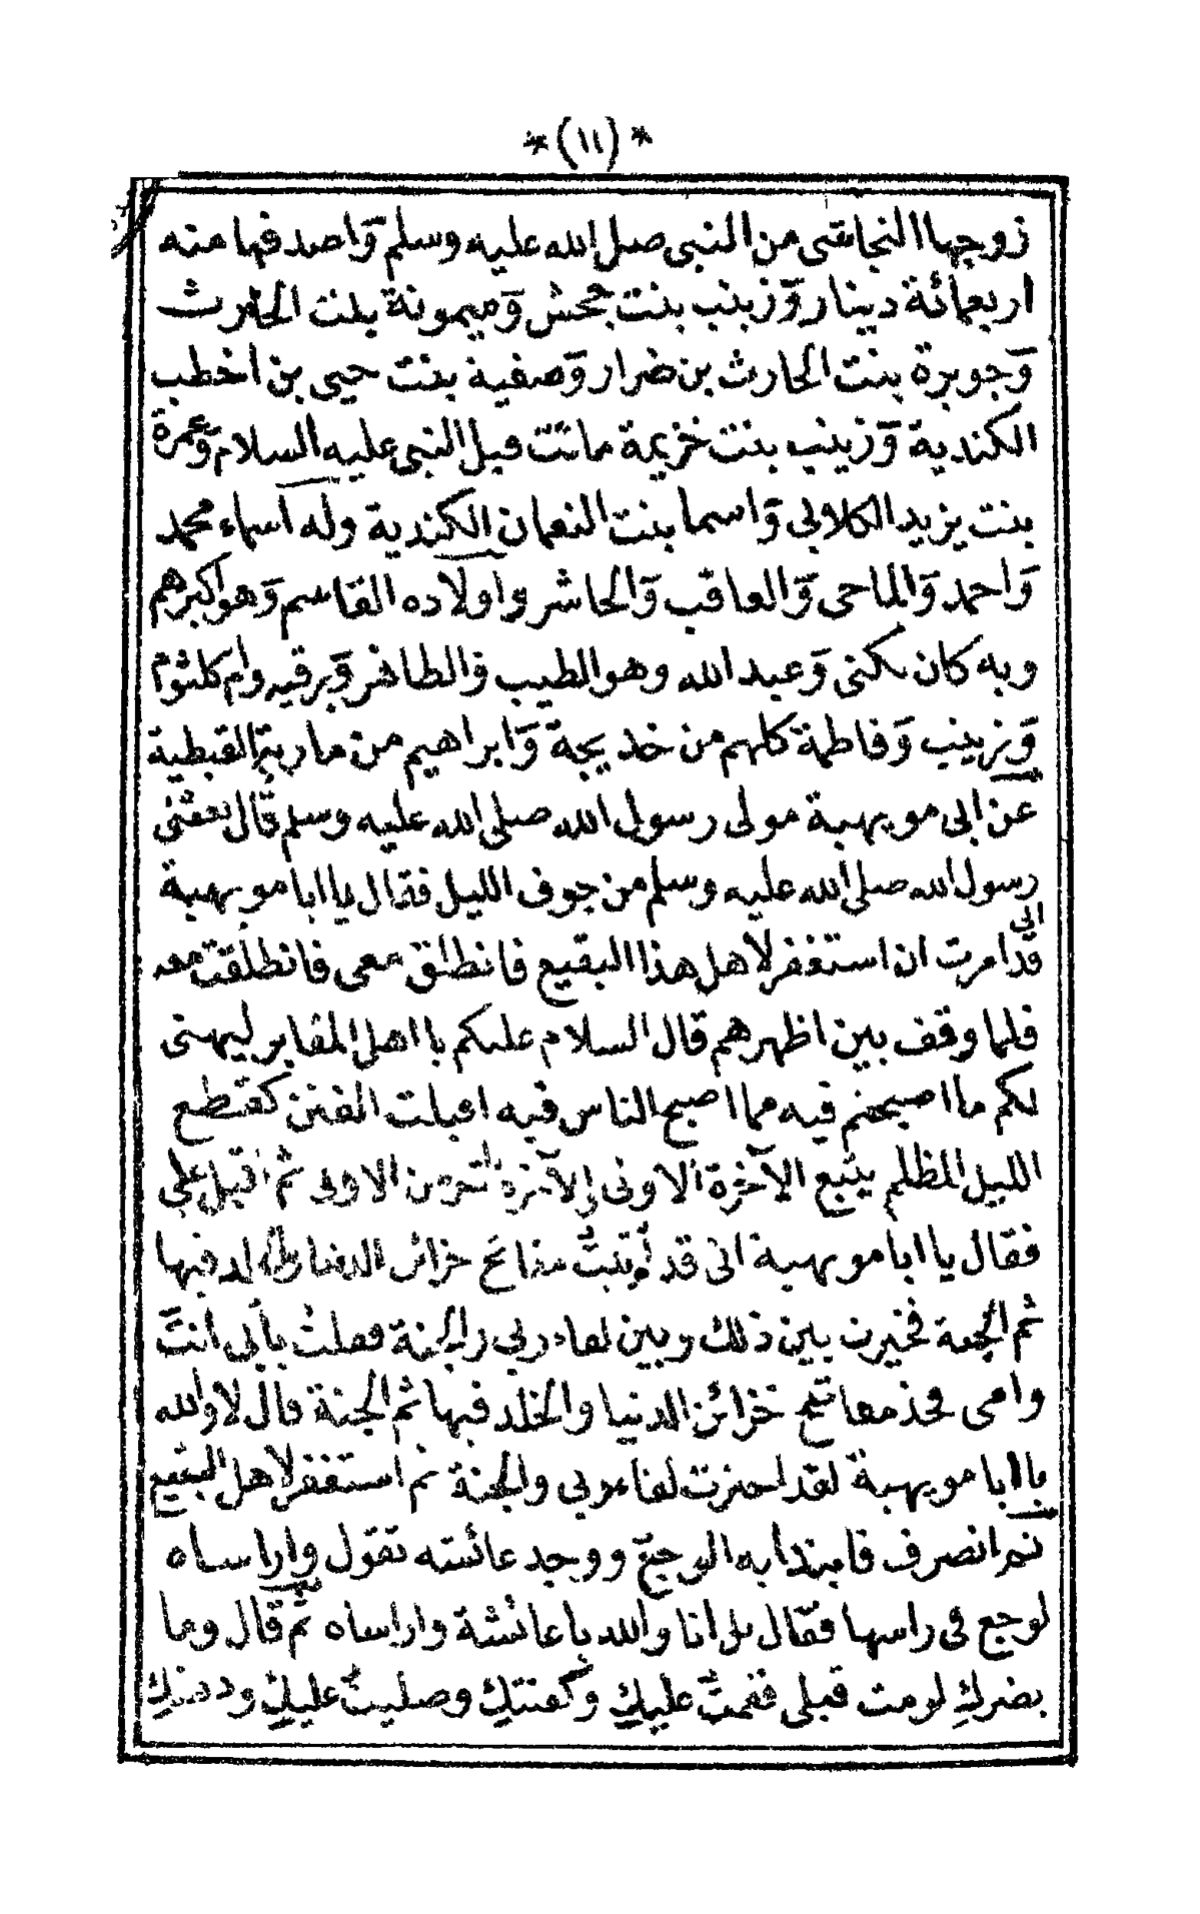 *(١١)*
زوجها النجاشى من النبى صلى الله عليه وسلم وَاصدقها منه
اربعمائة دينار وَزينب بنت جحش وَميمونة بنت الحارث
وَجويرة بنت الحارث بن ضرار وَصفية بنت حيى بن اخطب
الكندية وَزينب بنت خزيمة ماتت قبل النبى عليه السلام وَعمرة
بنت يزيد الكلابى وَاسما بنت النعمان الكندية وله اسماء محمد
وَاحمد وَالماحى وَالعاقب وَالحاشر واولاده القاسم وَهو اكبرهم
وبه كان يكنى وَعبد الله وهو الطيب والطاهر وَرقيه وام كلثوم
وَزينب وَفاطمة كلهم من خديجة وَابراهيم من مارية القبطية
عن ابى مويهبة مولى رسول الله صلى الله عليه وسلم قال بعثنى
رسول الله صلى الله عليه وسلم من جوف الليل فقال يا ابا مويهبة
انى
قد امرت ان استغفر لاهل هذا البقيع فانطلق معى فانطلقت معه
فلما وقف بين اظهرهم قال السلام عليكم يا اهل المقابر ليهنى
لكم ما اصبحتم فيه مما اصبح الناس فيه اقبلت الفتن كقطع
الليل المظلم يتبع الآخرة الاولى الآخرة شر من الاولى ثم اقبل على
فقال يا ابا مويهبة انى قد أوتيتُ مفاتح خزائن الدنيا والخلد فيها
ثم الجنة فخيرت بين ذلك وبين لقاء ربى والجنة فقلت بأبى أنتَ
وامى فخذ مفاتيح خزائن الدنيا والخلد فيها ثم الجنة قال لا والله
يا ابا مويهبة لقد اخترت لقاء ربى والجنة ثم استغفر لاهل البقيع
ثم انصرف فابتدا به الوجع ووجد عائشه تقول واراساه
لوجع فى راسها فقال بل انا والله يا عائشة واراساه ثم قال وما
يضركِ لومت قبلى فقمتُ عليكِ وكفنتكِ وصليتُ عليكِ ودفنتكِ